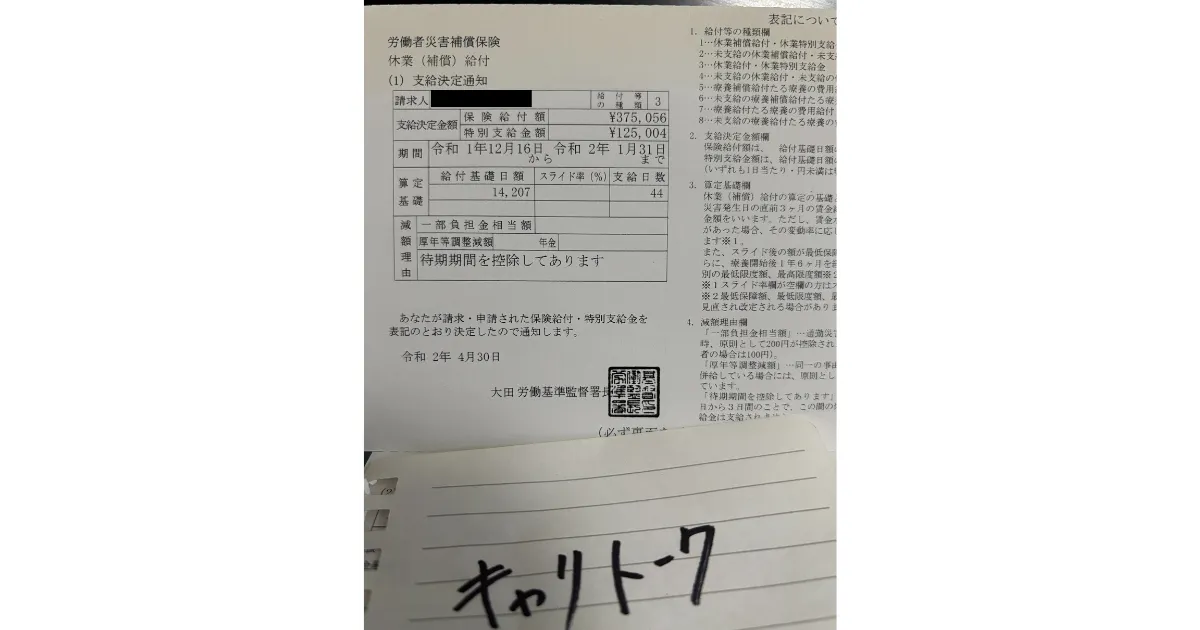 労働者災害補償保険
休業（補償）給付
(1) 支給決定通知
請求人
給付等の種類 3
支給決定金額 保険給付額 ¥375,056
特別支給金額 ¥125,004
期間 令和 1年12月16日から 令和 2年 1月31日まで
算定基礎 給付基礎日額 スライド率(%) 支給日数
14,207 44
減額理由 一部負担金相当額
厚年等調整減額 年金
待期期間を控除してあります
あなたが請求・申請された保険給付・特別支給金を
表記のとおり決定したので通知します。
令和 2年 4月30日
大田 労働基準監督署長
表記について
1. 給付等の種類欄
1…休業補償給付・休業特別支給
2…未支給の休業補償給付・未支
3…休業給付・休業特別支給金
4…未支給の休業給付・未支給の
5…療養補償給付たる療養の費用
6…未支給の療養補償給付たる療
7…療養給付たる療養の費用給付
8…未支給の療養給付たる療養の
2. 支給決定金額欄
保険給付額は、 給付基礎日額
特別支給金額は、給付基礎日額
(いずれも1日当たり・円未満は
3. 算定基礎欄
休業（補償）給付の算定の基礎
災害発生日の直前3ヶ月の賃金
金額をいいます。ただし、賃金水
があった場合、その変動率に応じ
ます※1。
また、スライド後の額が最低保障
らに、療養開始後1年6ヶ月を
別の最低限度額、最高限度額※2
※1スライド率欄が空欄の方はス
※2最低保障額、最低限度額、最
見直され改定される場合があります
4. 減額理由欄
「一部負担金相当額」…通勤災
時、原則として200円が控除され
者の場合は100円)。
「厚年等調整減額」…同一の事由
併給している場合には、原則とし
ています。
「待期期間を控除してあります」
日から3日間のことで、この間の
給金は支給されません
(必ず裏面
キャリトーク